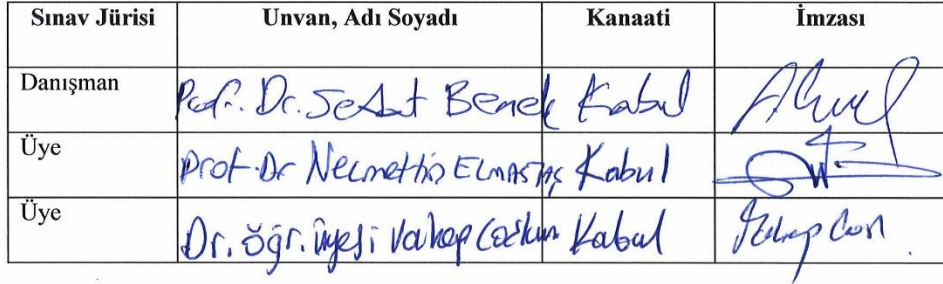 Sınav Jürisi Unvan, Adı Soyadı Kanaati İmzası
Danışman Prof. Dr. Sedat Benek Kabul
Üye Prof. Dr Necmettin ELMASTAŞ Kabul
Üye Dr. öğr. üyesi Vahap Coşkun Kabul